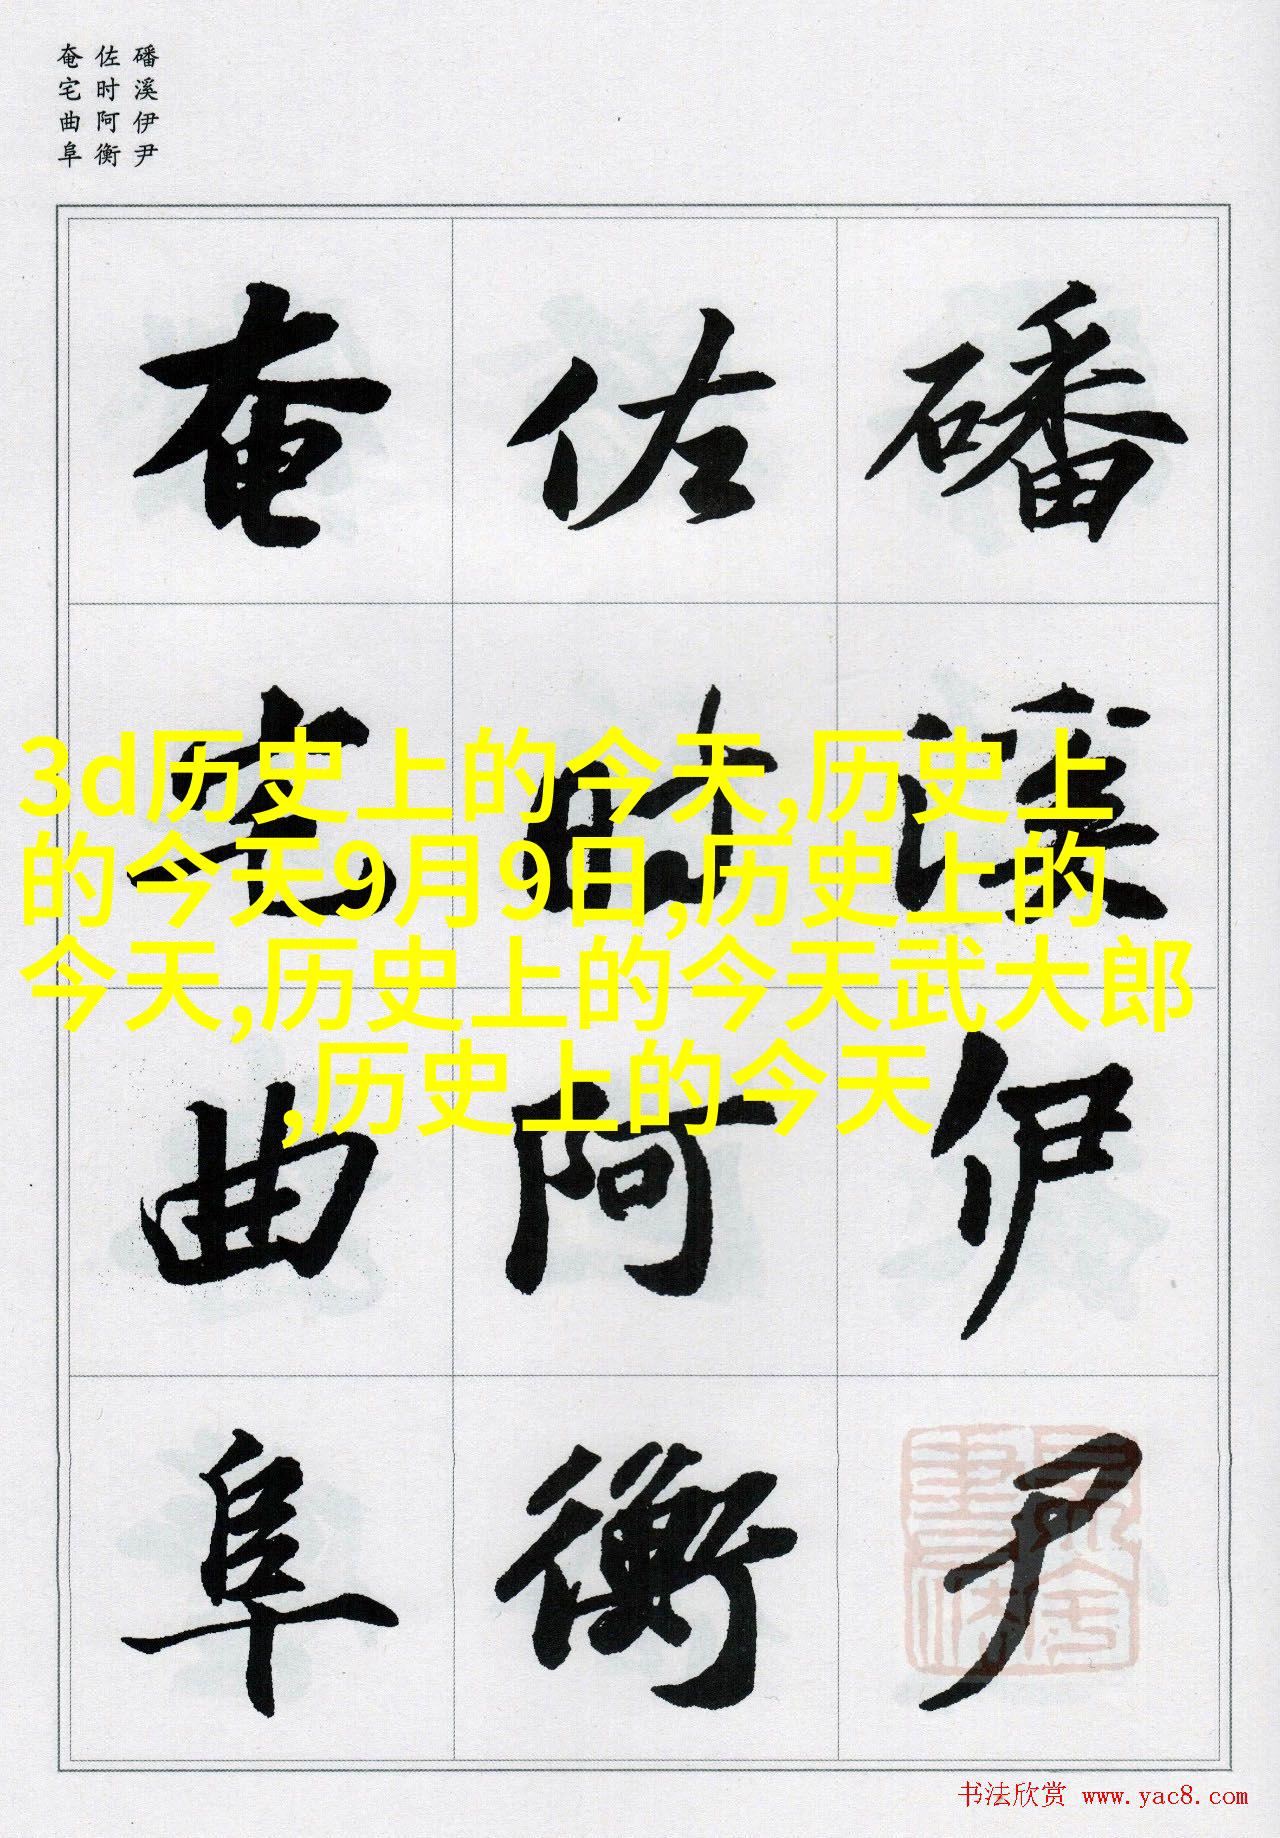 磻溪伊尹
佐时阿衡
奄宅曲阜
磻溪伊尹
佐时阿衡
奄宅曲阜
3d历史上的今天,历史上
的今天9月9日,历史上的
今天,历史上的今天武大郎
,历史上的今天
书法欣赏 www.yac8.com